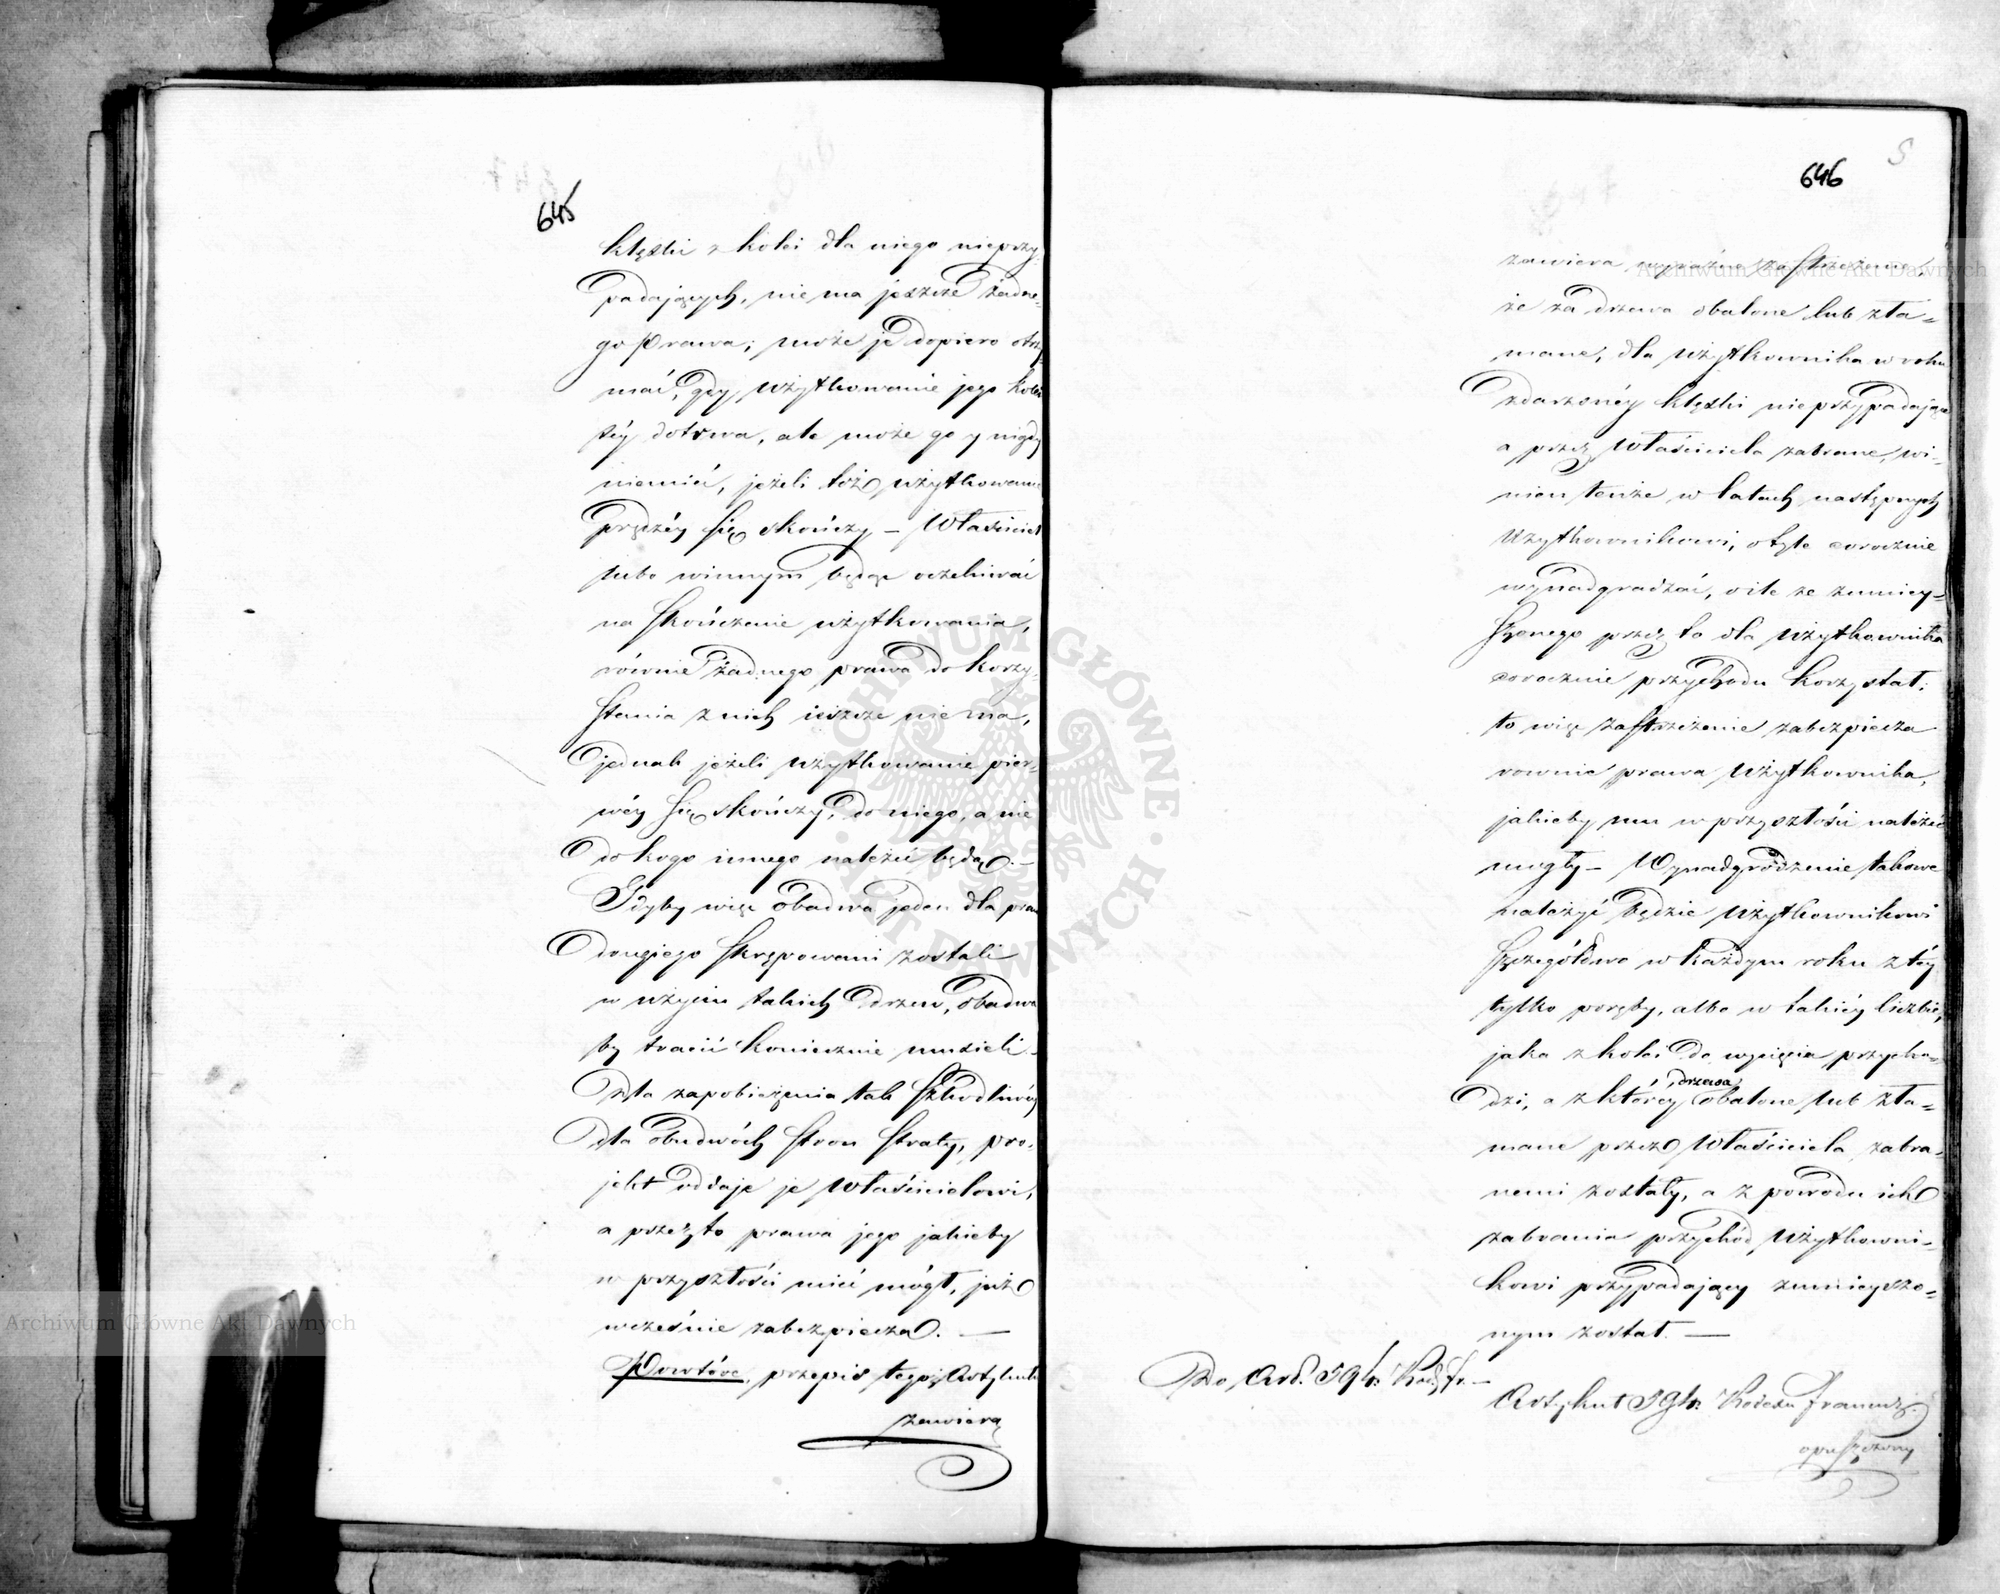 645
klęski z kolei dla niego nieprzy-
padających, nie ma jeszcze żadne-
go prawa; może je dopiero otrzy-
mać, gdy użytkowanie jego kolei
téy dotrwa, ale może go y nigdy
niemieć, jeżeli toż użytkowanie
prędzéy się skończy — Właściciel
lubo winnym będąc oczekiwać
na skończenie użytkowania,
równie żadnego prawa do korzy-
stania z nich ieszcze nie ma,
jednak jeżeli użytkowanie pier-
wéy się skończy, do niego, a nie
do kogo innego należeć będą. —
Gdyby więc obadwa jeden dla praw
drugiego skrępowani zostali
w użyciu takich drzew, obadwa
by tracić koniecznie musieli.
Dla zapobieżenia tak szkodliwéy
dla obudwóch stron straty, pro-
jekt oddaje je Właścicielowi,
a przezto prawa jego jakieby
w przyszłości mieć mógł, już
wcześnie zabezpiecza. —
Powtóre, przepis tegoż Artykułu
zawiera
646
5
zawiera wyraźne zastrzeżenie,
że za drzewa obalone lub zła-
mane, dla użytkownika w roku
zdarzonéy klęski nieprzypadające
a przez Właściciela zabrane, wi-
nien tenże w latach następnych
Użytkownikowi, otyle corocznie
wynadgradzać, o ile ze zmniey-
szonego przez to dla użytkownika
corocznie przychodu korzystał;
to więc zastrzeżenie zabezpiecza
rownie prawa Użytkownika,
jakieby mu w przyszłości należeć
mogły — Wynadgrodzenie takowe
należyć będzie użytkownikowi
szczegółowo w każdym roku z téy
tylko poręby, albo w takiéy liczbie,
jaka z kolei do wycięcia przycho-
drzewa
dzi, a z któréy obalone lub zła-
mane przez Właściciela zabra-
nemi zostały, a z powodu ich
zabrania przychód Użytkowni-
kowi przypadający zmnieyszo-
nym został. —
Do Art. 594. Kod. fr. —
Artykuł 594. Kodexu francuz.
opuszczony
Archiwum Główne Akt Dawnych
Archiwum Główne Akt Dawnych
ARCHIWUM GŁÓWNE · AKT DAWNYCH ·